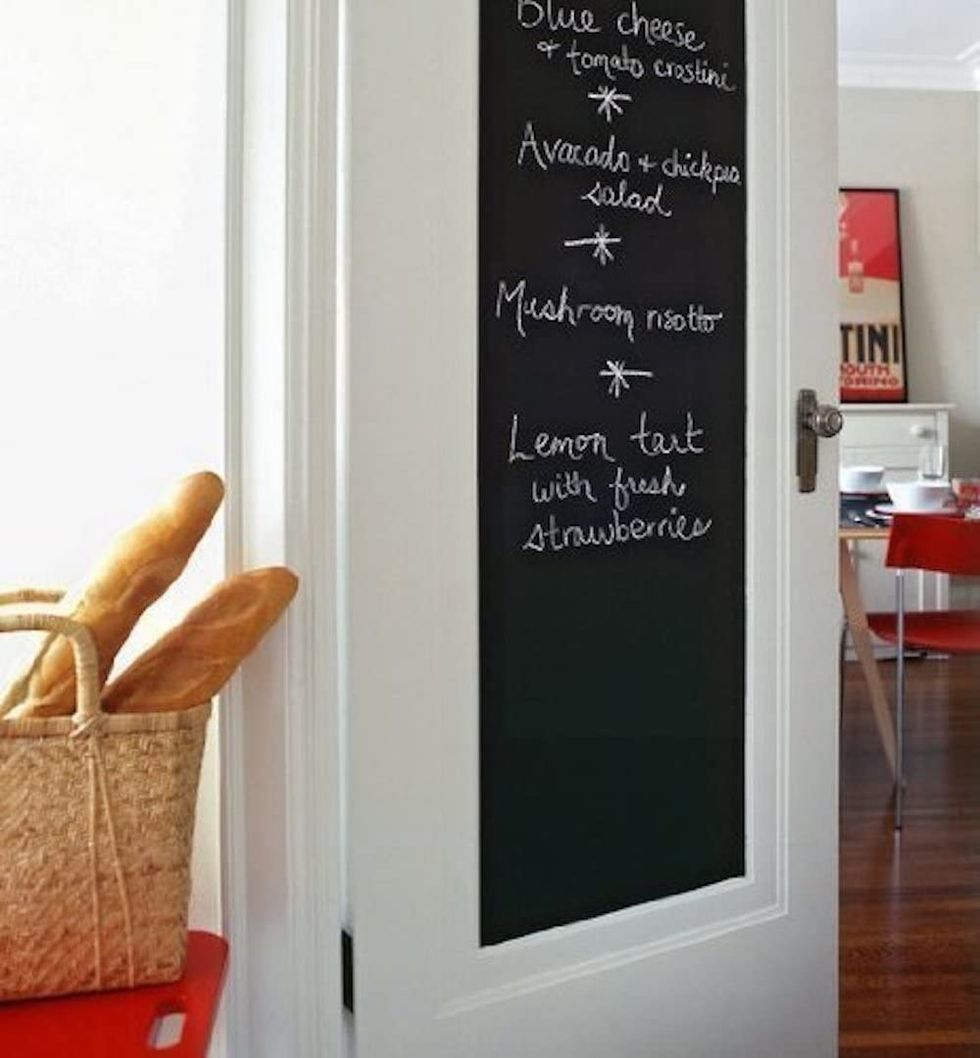 Blue cheese
+ tomato crostini
Avacado + chickpea
salad
Mushroom risotto
Lemon tart
with fresh
strawberries
TINI
MOUTH
TORINO